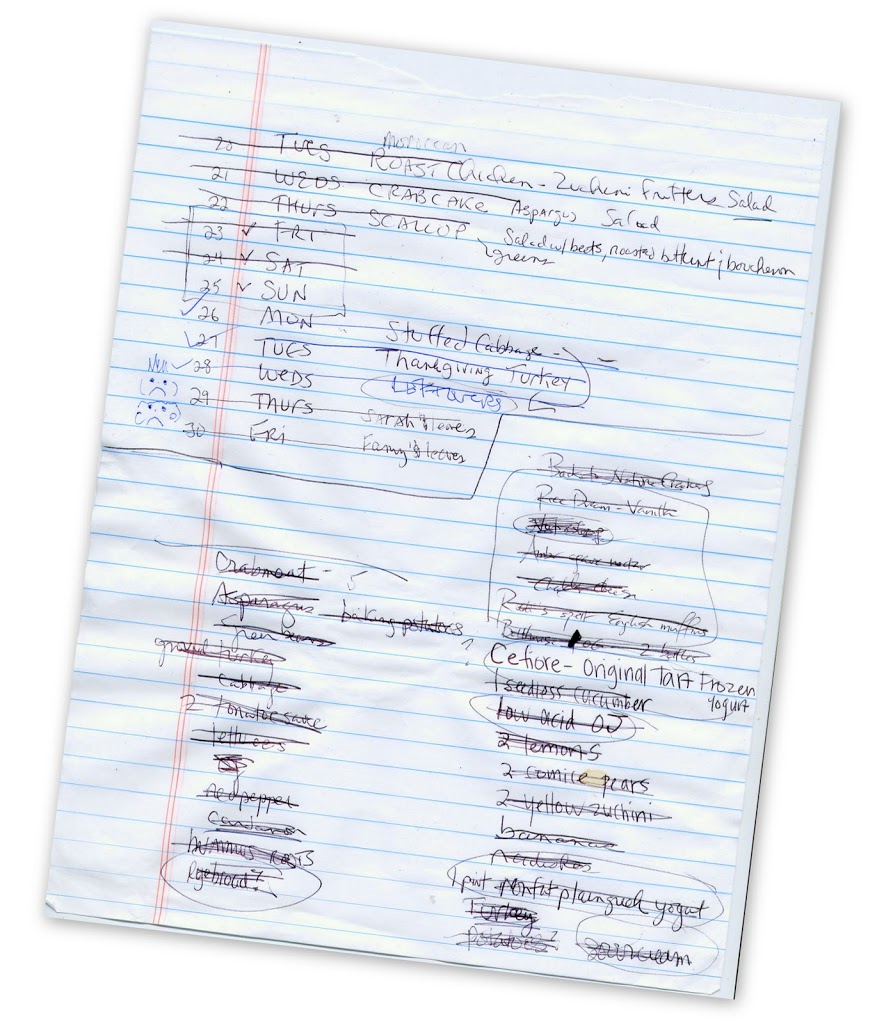 20 TUES Moroccan ROAST Chicken - Zuchini Fritters Salad
21 WEDS CRABCAKE Aspargus Salad
22 THURS SCALLOP Salad w/ beets, roasted buttnut & boucheron
greens
23 ✓ FRI
24 ✓ SAT
25 ✓ SUN
✓ 26 MON Stuffed Cabbage -
✓ 27 TUES Thanksgiving Turkey
✓ 28 WEDS Leftovers
29 THURS Sarah leaves
30 FRI Fanny leaves
Back to Nature
Rice Dream - Vanilla
English muffins
2
Crabmeat - 5
Asparagus baking potatoes
green beans
ground turkey
cabbage
2 tomato sauce
lettuces
red pepper
hummus
Ryebread?
? Cefiore - Original Tart Frozen
Yogurt
1 seedless cucumber
low acid OJ
2 lemons
2 comice pears
2 yellow zuchini
bananas
1 pint - nonfat plain yogut
Turkey
potatoes? sour cream